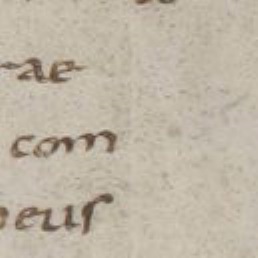 rae
com
eus